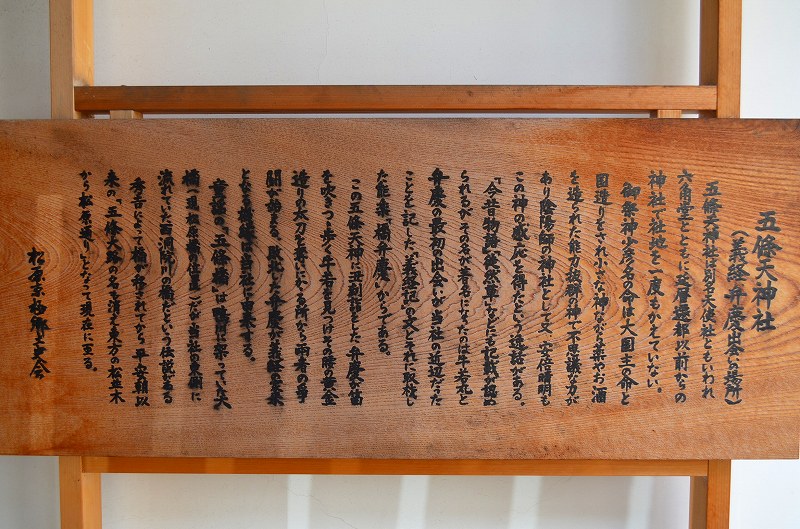 五條天神社
（義経・弁慶出会の場所）
五條天神社は別名天使社ともいわれ
六角堂とともに延暦遷都以前からの
神社で社地を一度もかえていない。
御祭神少彦名の命は大国主の命と
国造りをされ小さな神ながら薬やお酒
を造られた能力抜群の神で不思議な力が
あり陰陽師の神社とし又、安倍晴明も
この神の感応を得たという逸話がある。
「今昔物語」「徒然草」などにも記載が認め
られるがその名が著名になったのは牛若丸と
弁慶の最初の出会いが当社の近辺だった
ことを記した「義経記」の文とそれに取役し
た能楽「橋弁慶」からである。
この五條天神に三刻指をした弁慶が笛
を吹きつつ歩く牛若を見つけその腰の黄金
造りの太刀を奪いにかゝる所から両者の争
闘が始まる。敗北した弁慶が義経の家来
となる機縁は当社に由来する。
童謡の「五條の橋」は鴨川に架っていた大
橋（現松原橋の位置）だが当社の東側に
流れていた西洞院川の橋だという伝説もある
秀吉によって橋が移されてから平安朝以
来の「五條大路」の名も消え東方の松並木
から「松原通り」となって現在に至る。
松原京極郷土史会